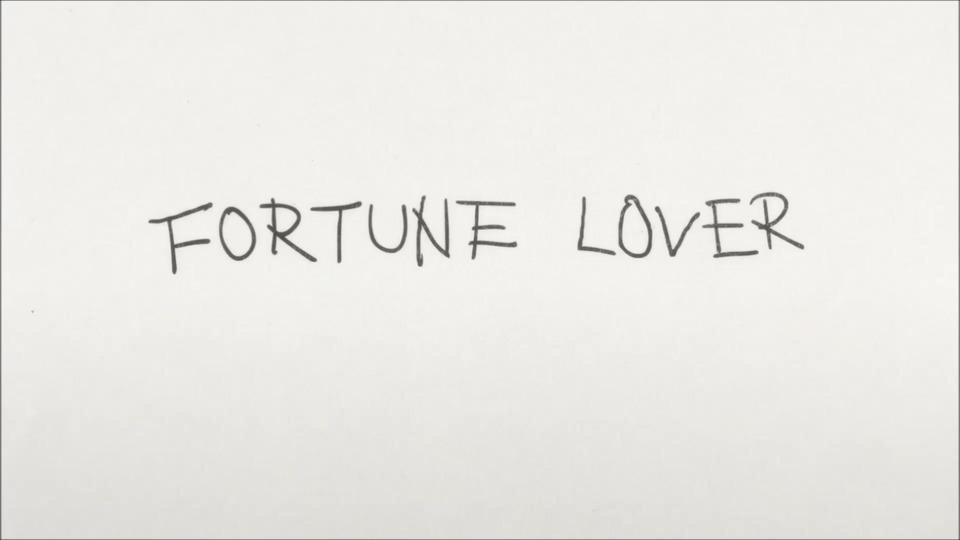 FORTUNE LOVER